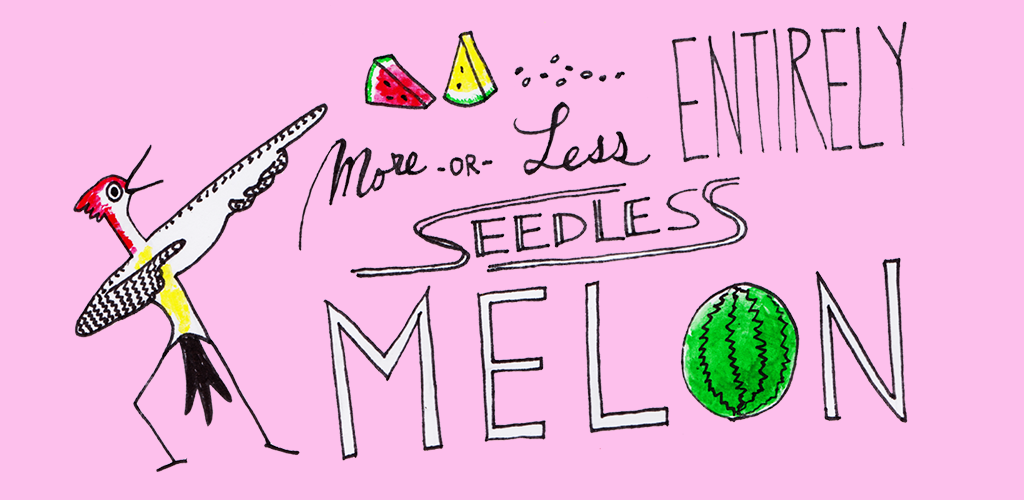 More -OR- Less ENTIRELY
SEEDLESS
MELON